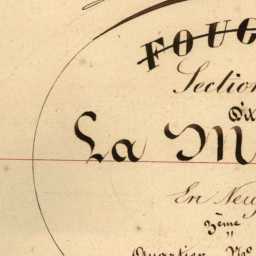 FOUG
Section
Dix
La M
En Neu
3ème
Quartier No